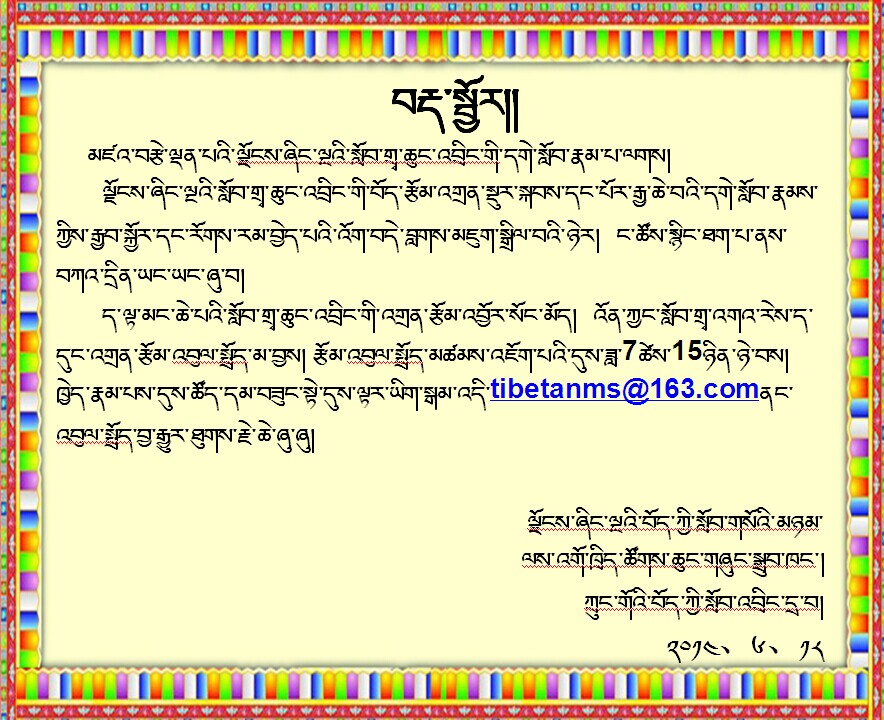 བརྡ་སྦྱོར།།
མཛའ་བརྩེ་ལྡན་པའི་ལྗོངས་ཞིང་ལྔའི་སློབ་གྲྭ་ཆུང་འབྲིང་གི་དགེ་སློབ་རྣམ་པ་ལགས།
ལྗོངས་ཞིང་ལྔའི་སློབ་གྲྭ་ཆུང་འབྲིང་གི་བོད་རྩོམ་འགྲན་སྡུར་སྐབས་དང་པོར་རྒྱ་ཆེ་བའི་དགེ་སློབ་རྣམས་
ཀྱིས་རྒྱབ་སྐྱོར་དང་རོགས་རམ་བྱེད་པའི་འོག་བདེ་བླགས་མཇུག་སྒྲིལ་བའི་ཉེར། ང་ཚོས་སྙིང་ཐག་པ་ནས་
བཀའ་དྲིན་ཡང་ཡང་ཞུ་བ།
ད་ལྟ་མང་ཆེ་པའི་སློབ་གྲྭ་ཆུང་འབྲིང་གི་འགྲན་རྩོམ་འབྱོར་སོང་མོད། འོན་ཀྱང་སློབ་གྲྭ་འགའ་རེས་ད་
དུང་འགྲན་རྩོམ་འབུལ་སྤྲོད་མ་བྱས། རྩོམ་འབུལ་སྤྲོད་མཚམས་འཇོག་པའི་དུས་ཟླ་7ཚེས་15ཉིན་ཉེ་བས།
ཁྱེད་རྣམ་པས་དུས་ཚོད་དམ་བཟུང་སྟེ་དུས་ལྟར་ཡིག་སྒམ་འདི་tibetanms@163.comནང་
འབུལ་སྤྲོད་བྱ་རྒྱུར་ཐུགས་རྗེ་ཆེ་ཞུ་ཞུ།
ལྗོངས་ཞིང་ལྔའི་བོད་ཀྱི་སློབ་གསོའི་མཉམ་
ལས་འགོ་ཁྲིད་ཚོགས་ཆུང་གཞུང་སྒྲུབ་ཁང་།
ཀྲུང་གོའི་བོད་ཀྱི་སློབ་འབྲིང་དྲ་བ།
༢༠༡༤、 ༦、 ༡༨